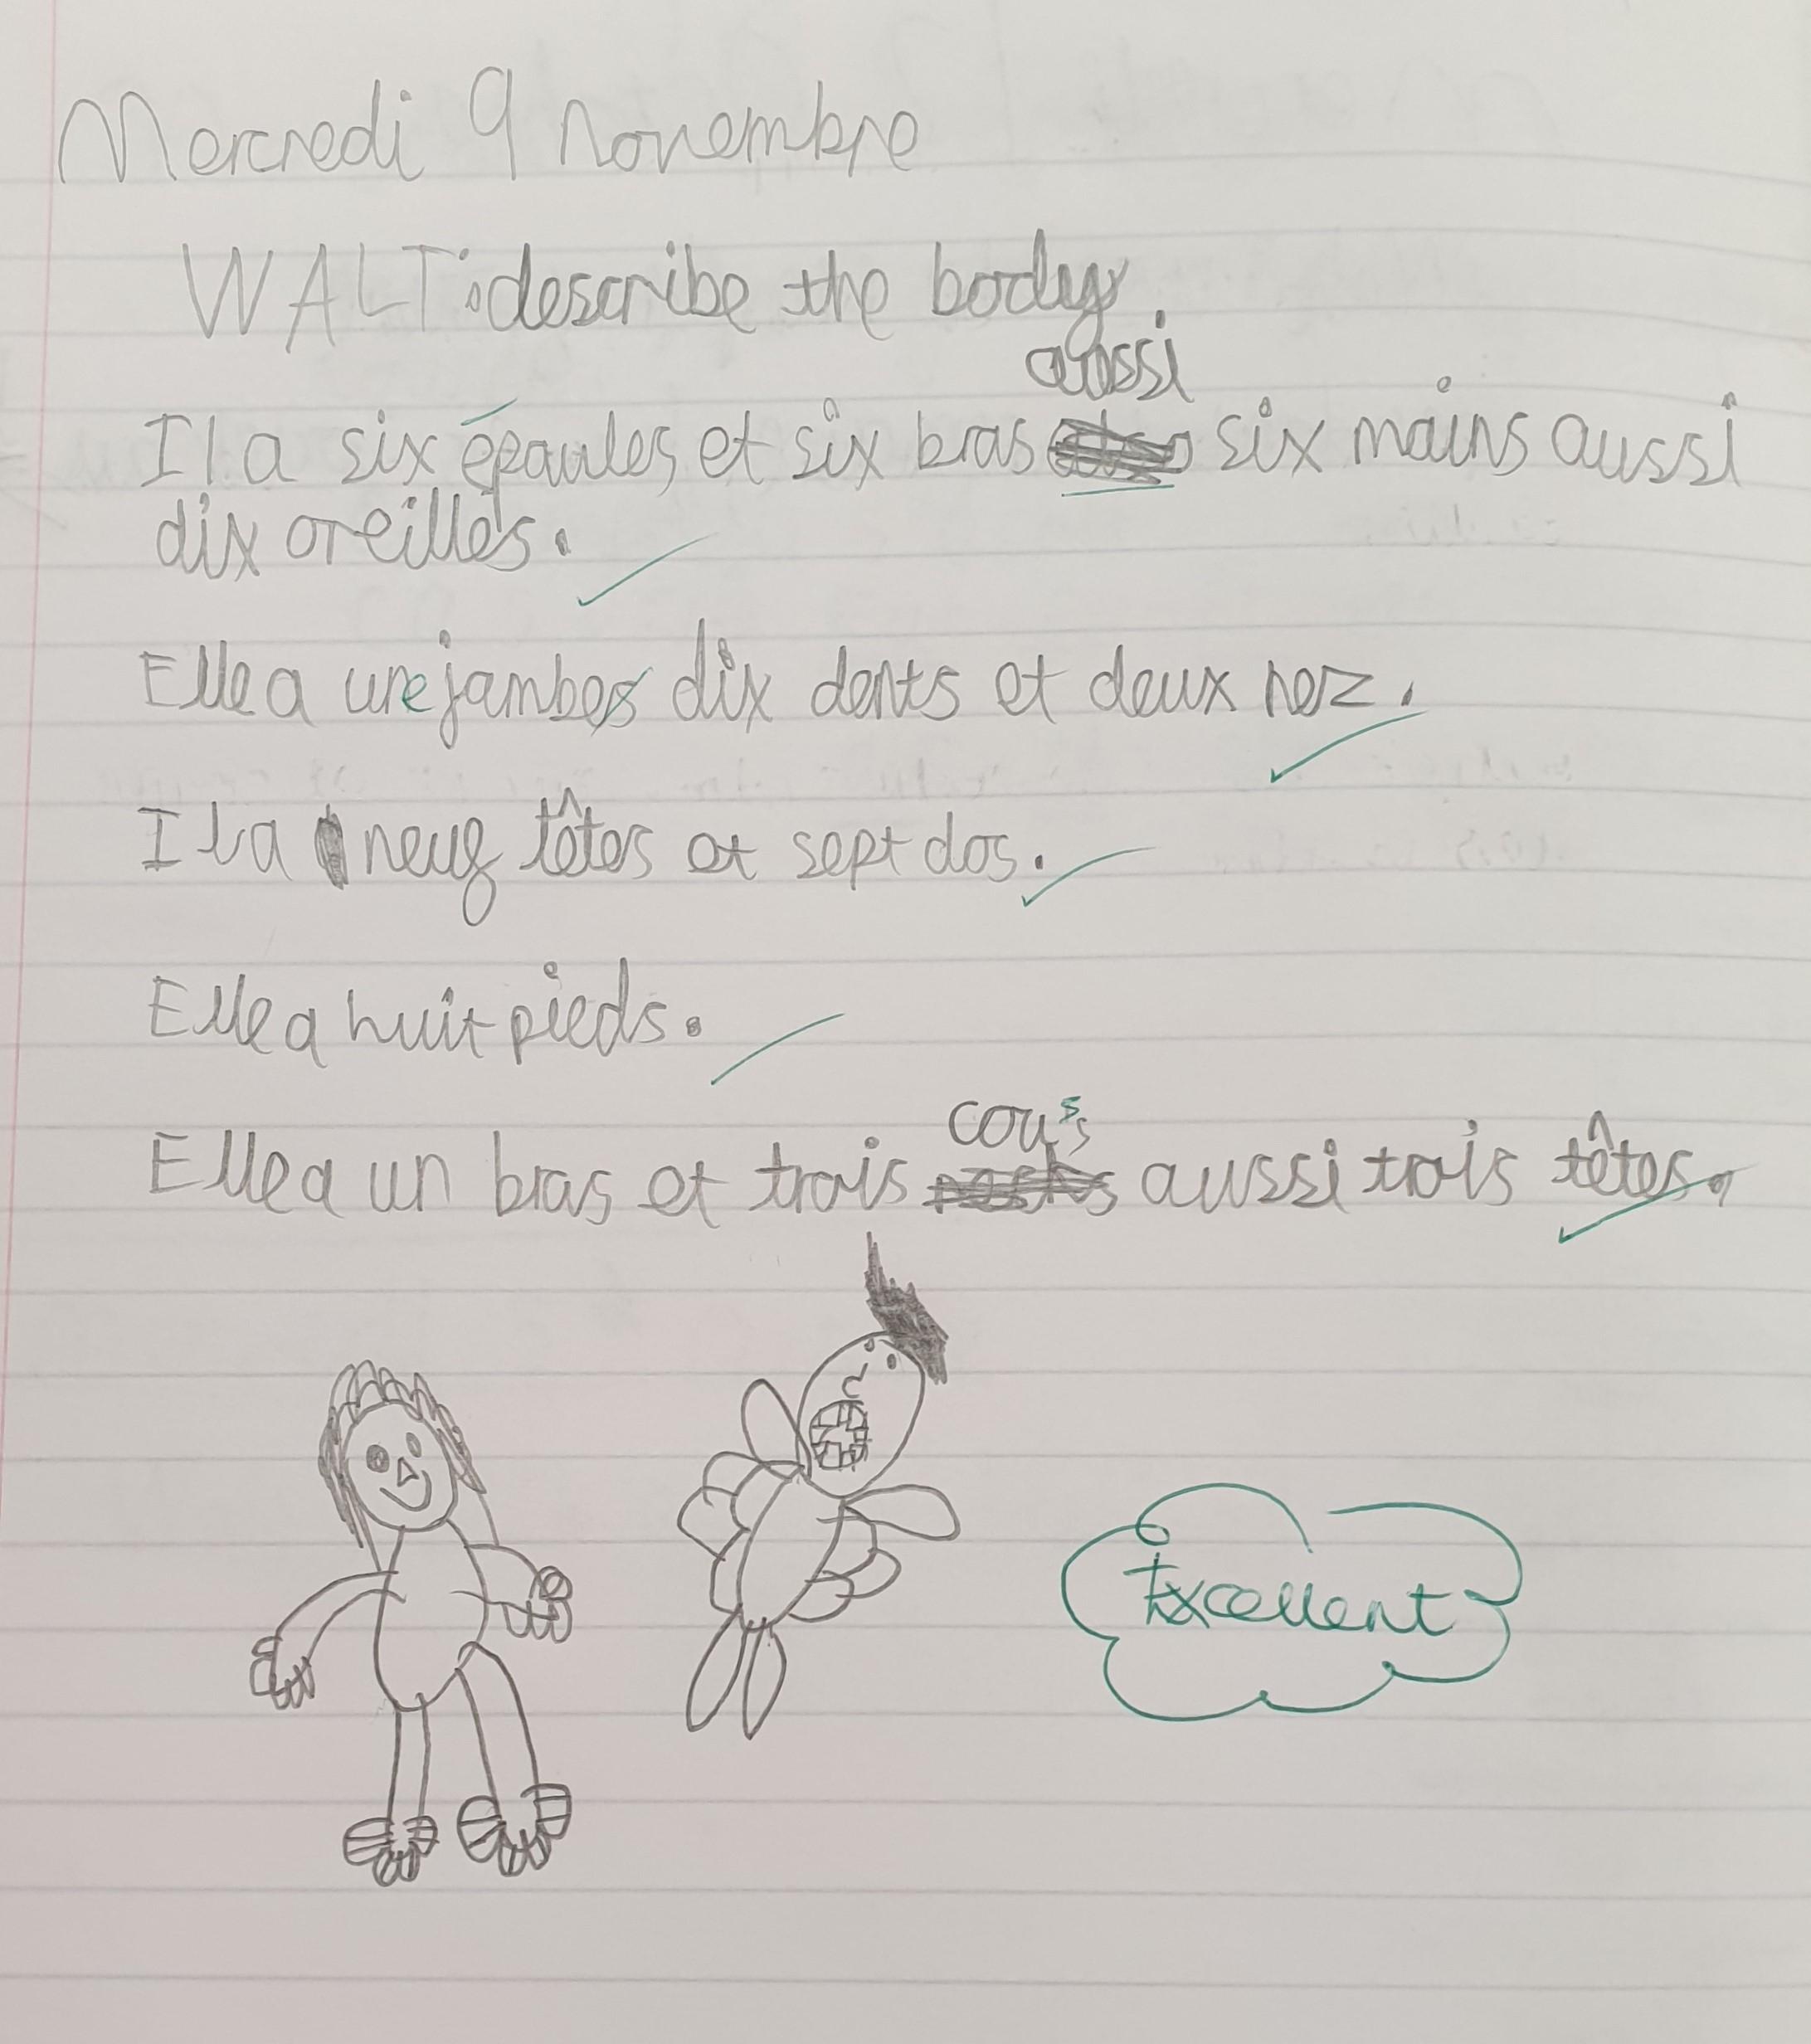 Mercredi 9 novembre
WALT: describe the body.
aussi
Il a six épaules et six bras six mains aussi
dix oreilles.
Elle a une jambes dix dents et deux nez.
Il a neuf têtes et sept dos.
Elle a huit pieds.
cous
Elle a un bras et trois aussi trois têtes.
Excellent